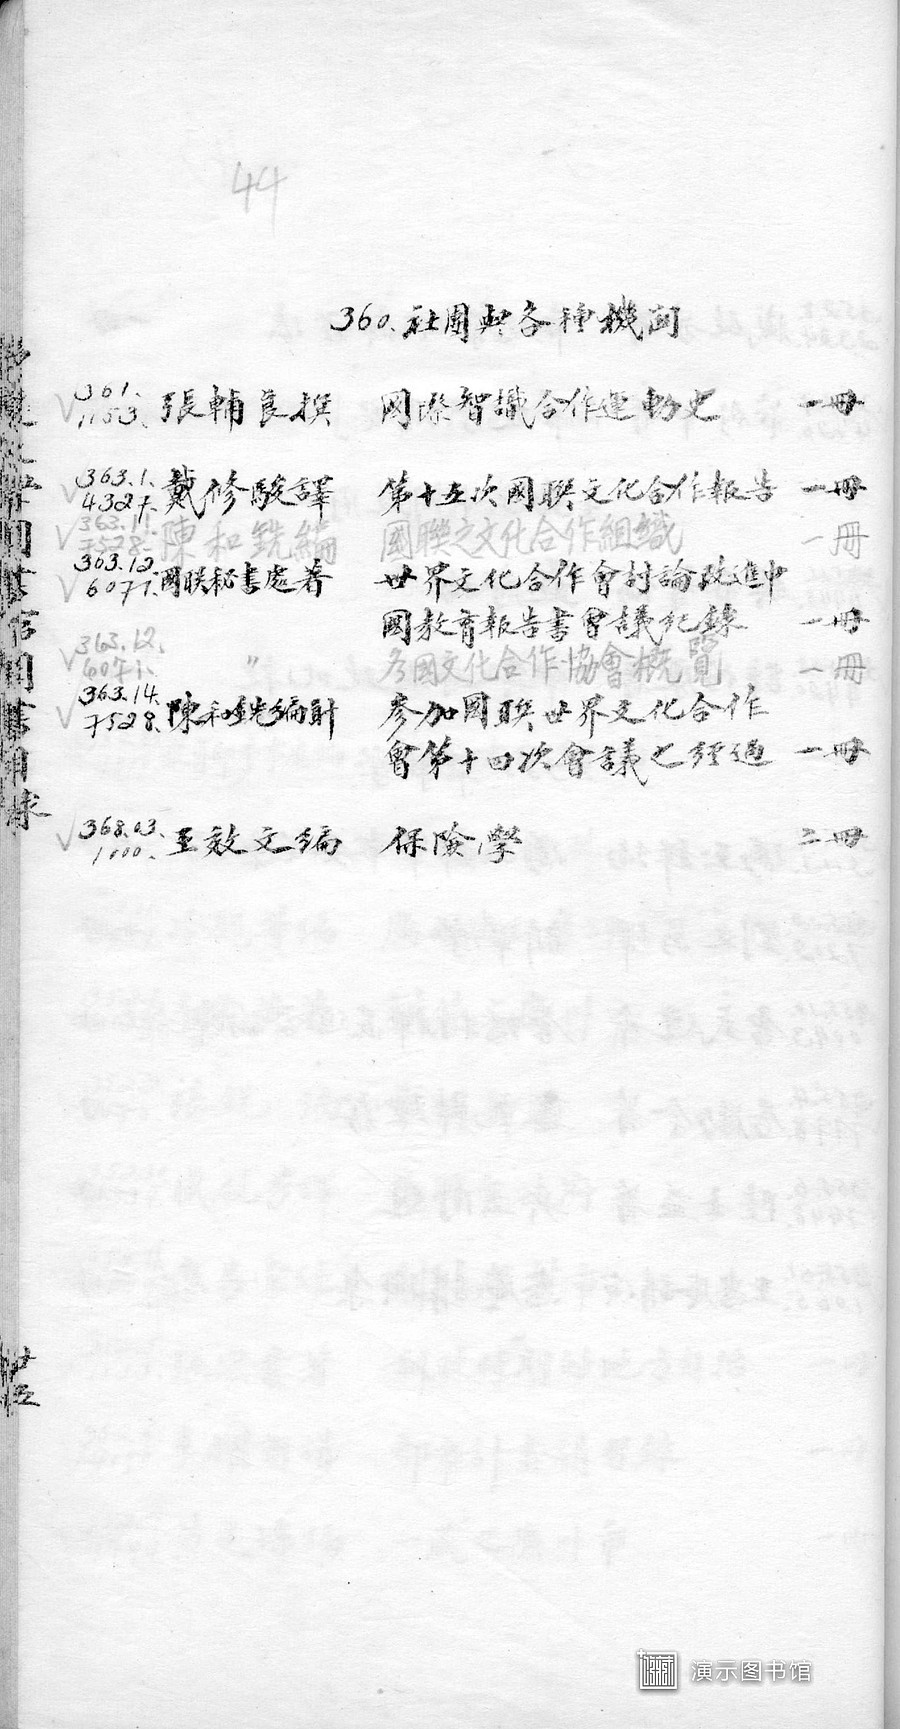 44
360. 社團與各種機關
361.
1153. 張輔良撰 國際智識合作運動史 一冊
363.1.
4327. 戴修駿譯 第十五次國聯文化合作報告 一冊
363.11.
7528. 陳和銑編 國聯之文化合作組織 一冊
363.12.
6077. 國联秘書處著 世界文化合作會討論改進中
國教育報告書會議紀錄 一冊
363.12.
〃 各國文化合作協會概覽 一冊
363.14.
7528. 陳和銑編 參加國聯世界文化合作
會第十四次會議之經過 一冊
368.03.
1000. 王效文編 保險學 二冊
演示图书馆